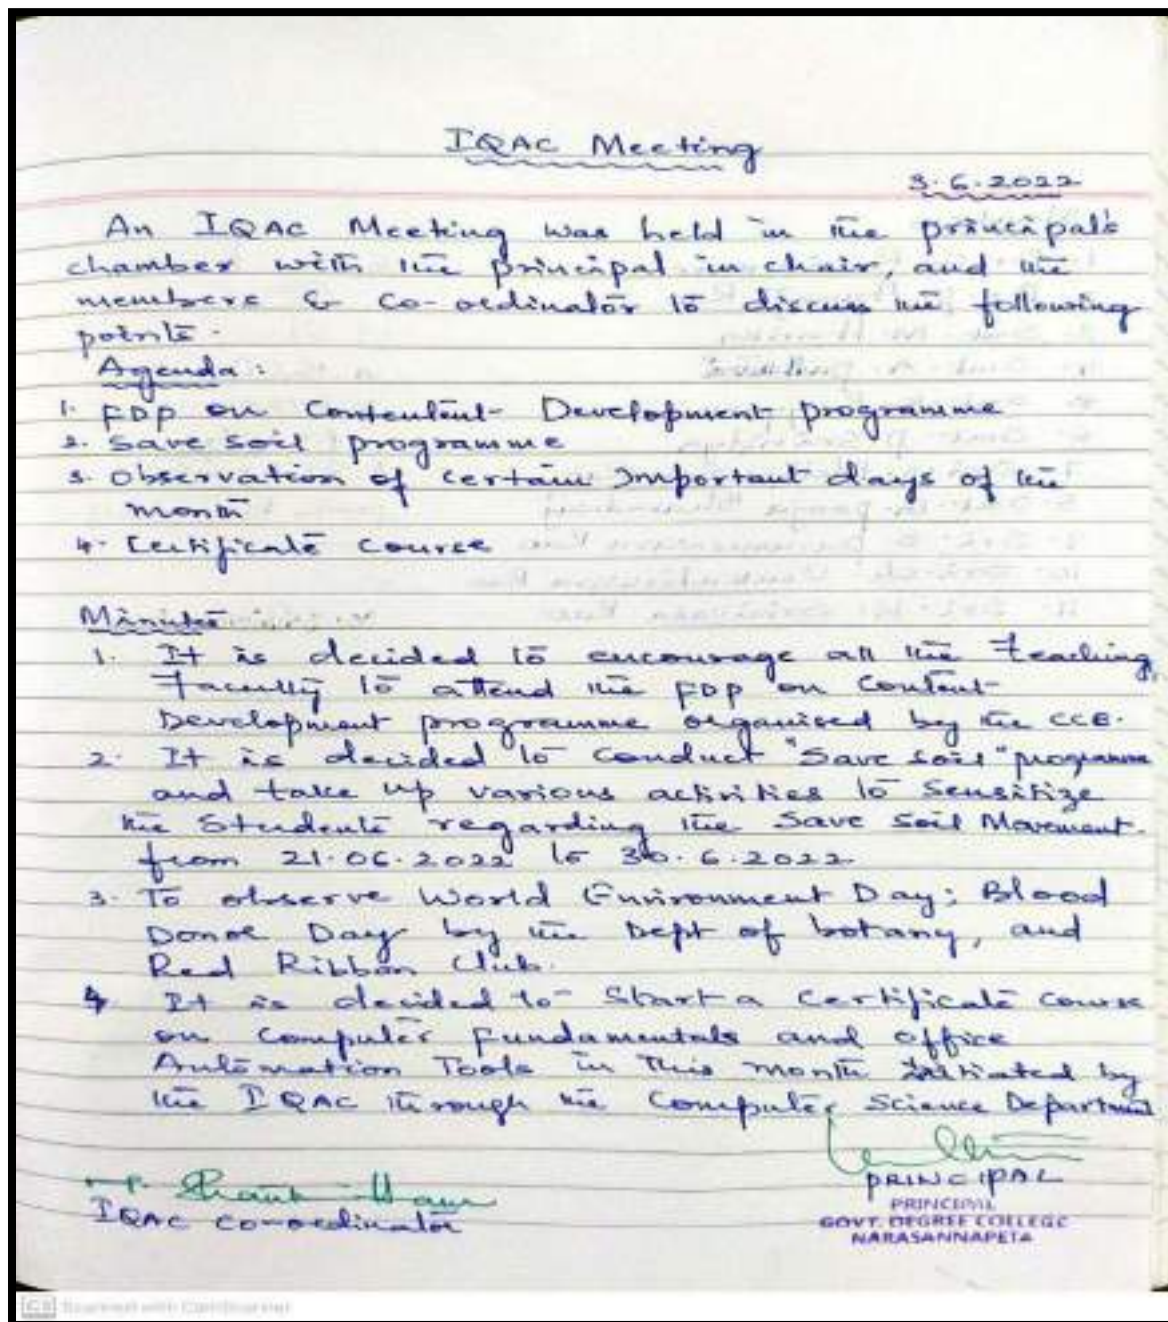 IQAC Meeting
3.6.2022
An IQAC Meeting was held in the principal's
chamber with the principal in chair, and the
members & Co-ordinator to discuss the following
points.
Agenda:
1. FDP on Contentent- Development programme
2. Save soil programme
3. Observation of certain Important days of the
month
4. Certificate course
Minutes
1. It is decided to encourage all the Teaching
Faculty to attend the FDP on Content
Development programme organised by the CCE.
2. It is decided to conduct "Save soil" programme
and take up various activities to Sensitize
the Students regarding the Save Soil Movement.
from 21.06.2022 to 30.6.2022.
3. To observe World Environment Day; Blood
Donor Day by the Dept of botany, and
Red Ribbon Club.
4 It is decided to Start a Certificate Course
on Computer Fundamentals and office
Automation Tools in this month initiated by
the IQAC through the Computer Science Department
IQAC Co-ordinator
PRINCIPAL
PRINCIPAL
GOVT. DEGREE COLLEGE
NARASANNAPETA
CS Scanned with CamScanner